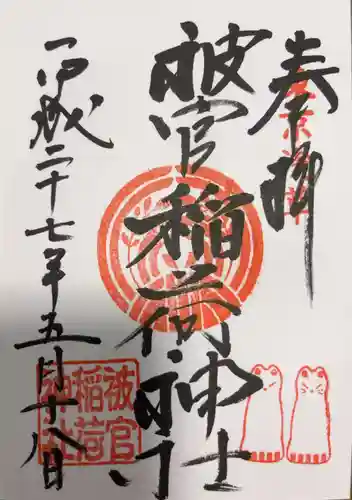 奉拝
被官稲荷神社
平成二十七年五月十八日
被官
稲荷
神社